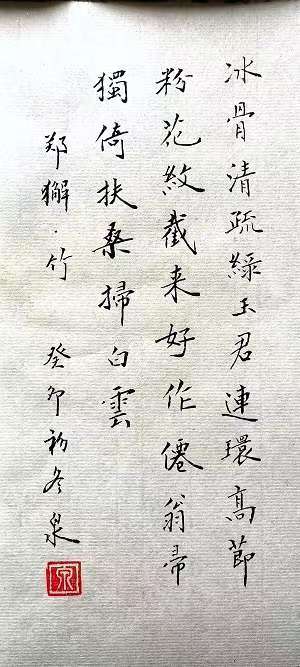 冰骨清疏綠玉君連環高節
粉花紋截来好作僊翁帚
獨倚扶桑掃白雲
郑獬·竹 癸卯初冬泉